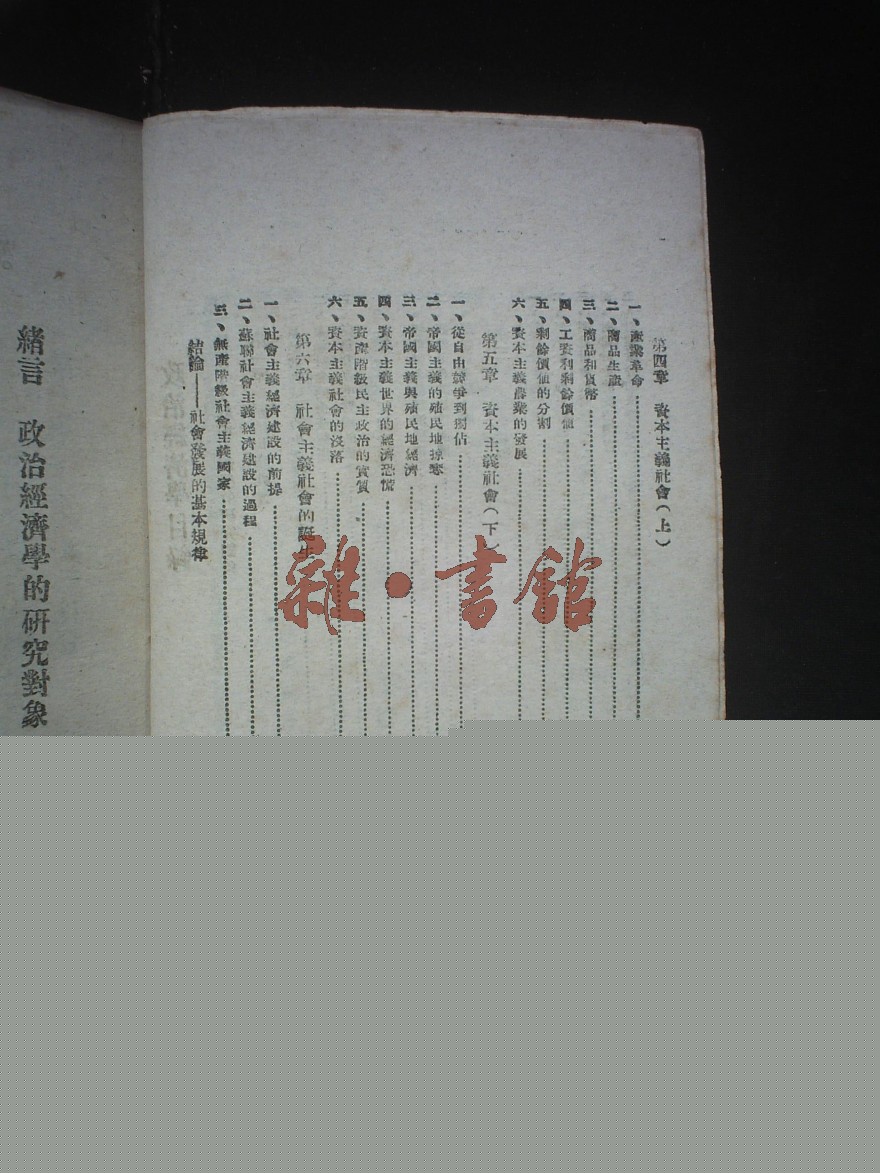 第四章 資本主義社會（上）
一、產業革命
二、商品生產
三、商品和貨幣
四、工資和剩餘價值
五、剩餘價值的分割
六、資本主義農業的發展
第五章 資本主義社會（下）
一、從自由競爭到獨佔
二、帝國主義的殖民地掠奪
三、帝國主義與殖民地經濟
四、資本主義世界的經濟恐慌
五、資產階級民主政治的實質
六、資本主義社會的沒落
第六章 社會主義社會的誕生
一、社會主義經濟建設的前提
二、蘇聯社會主義經濟建設的過程
三、無產階級社會主義國家
結論——社會發展的基本規律
緒言 政治經濟學的研究對象
雜·書館